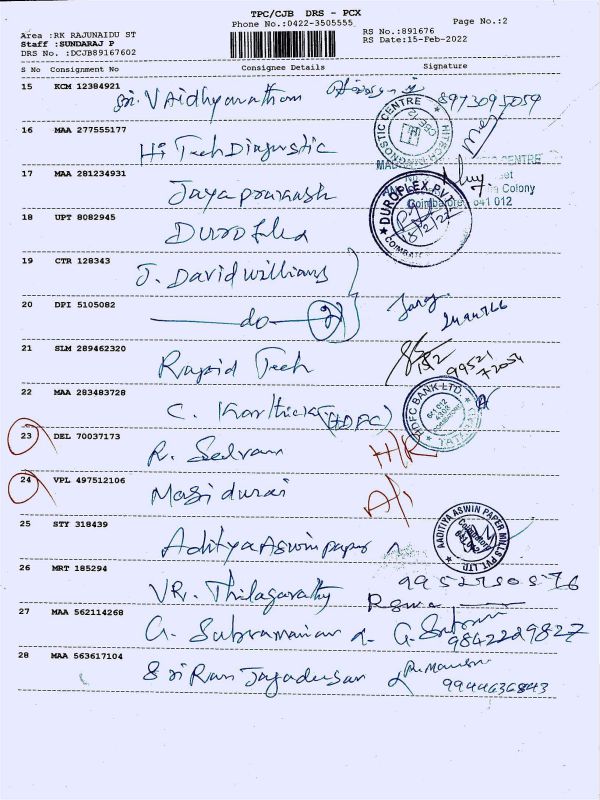 TPC/CJB DRS - PCX
Phone No.:0422-3505555
Page No.:2
Area :RK RAJUNAIDU ST
Staff :SUNDARAJ P
DRS No. :DCJB89167602
RS No.:891676
RS Date:15-Feb-2022
S No Consignment No Consignee Details Signature
15 KCM 12384921
Sri. VAidhyanatham 8973095059
16 MAA 277555177
Hi Tech Diagnostic
HITECH DIAGNOSTIC CENTRE
CENTRE
Colony
Coimbatore 641 012
17 MAA 281234931
Jaya prakash
18 UPT 8082945
Duroflex
DUROPLEX PVT
COIMBATORE
18/2/22
19 CTR 128343
J. David williams
20 DPI 5105082
do 2
2494766
21 SLM 289462320
Rapid Tech
99521
72054
22 MAA 283483728
C. Karthick (HDFC)
HDFC BANK LTD
641 012
23 DEL 70037173
R. Selvam
24 VPL 497512106
Magidurai
25 STY 318439
Aditya Aswin paper
AADITIYA ASWIN PAPER MILLS PVT LTD
Coimbatore
26 MRT 185294
VR. Thilagavathy 9952750576
27 MAA 562114268
G. Subramanian
9842229827
28 MAA 563617104
Sri Ram
9944636843